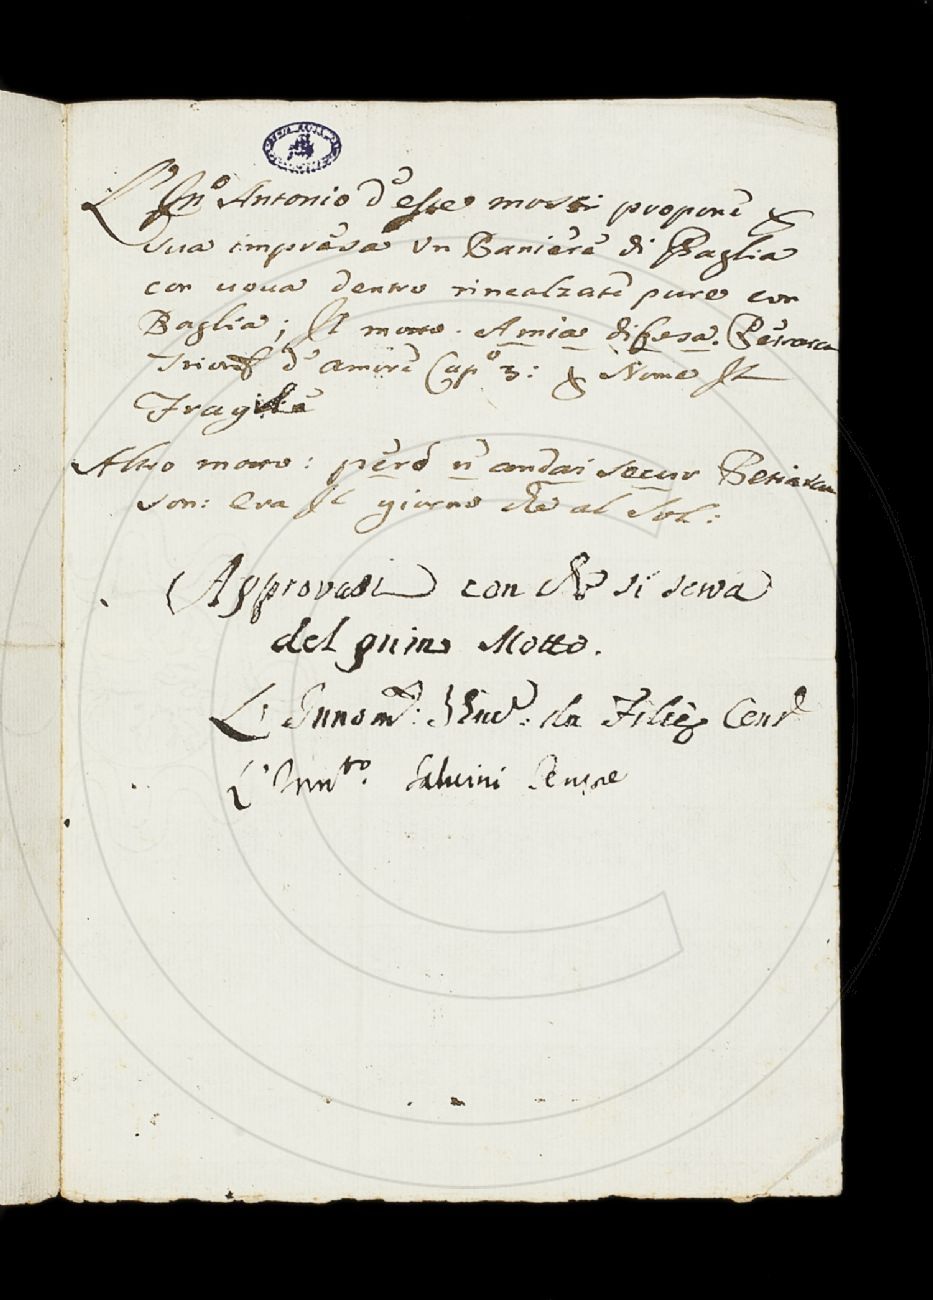 L'Inº Antonio d'este mosti propone p
sua impresa Un Paniere di Paglia
con uova dentro rincalzate pure con
Paglia; Il motto. A mia difesa. Petrarca
Trionf d'amore Capº 3: p Nome Il
Fragile
Altro motto: però n' andai secur Petrarca
son: Era Il giorno che al Sol:
Approvasi con che si serva
del primo Motto.
L'Innomº: Vincº: da Filic Cenre
L'Innto. Salvini Censre